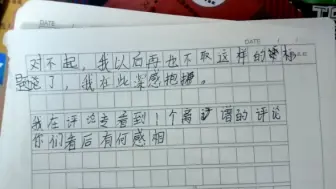 DATE
对不起，我以后再也不取这样的标
题了，我在此深感抱歉。
我在评论走看到1个离谱的评论
你们看后有何感相